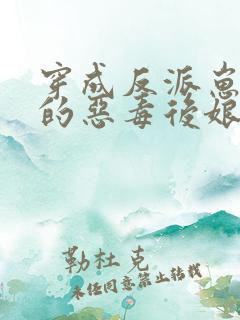 穿成反派崽
的惡毒後娘
勒杜克
未经同意禁止转载